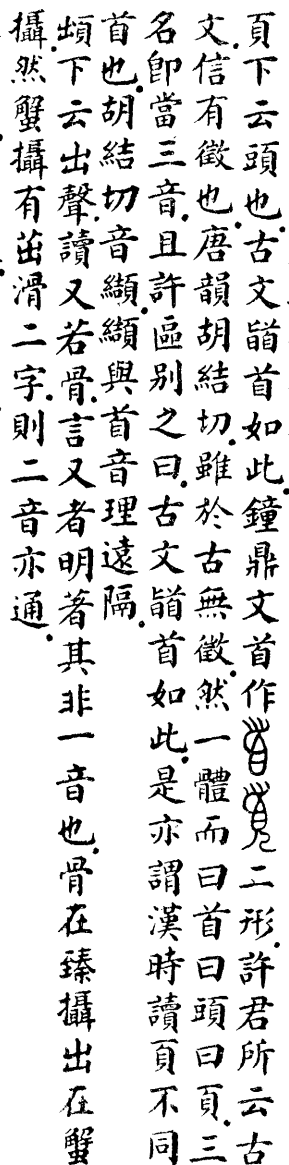 頁下云頭也。古文䭫首如此。鐘鼎文首作二形。許君所云古
文信有徵也。唐韻胡結切。雖於古無徵。然一體而曰首曰頭曰頁。三
名卽當三音。且許區別之曰。古文䭫首如此。是亦謂漢時讀頁不同
首也。胡結切音纈。纈與首音理遠隔。
䪼下云出聲。讀又若骨。言又者明著其非一音也。骨在臻攝出在蟹
攝然蟹攝有茁滑二字。則二音亦通。